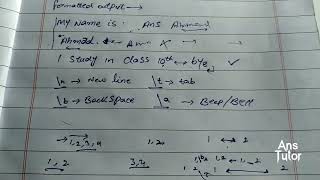 Formatted output →
My Name is : Ans Ahmad
Ahmad. Ans X → →
I study in class 10th ↔ bye ✓
\n → New line \t → tab
\b → BackSpace \a → Beep/
→ 1,2,3,4 1,2, 1 ↔ 2
1, 2 3,4
Ans
Tutor